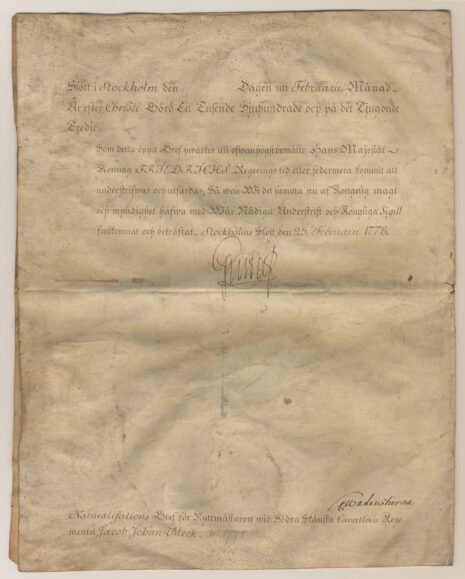 Slott i Stockholm den Dagen uti Februarii Månad
År efter Christi Börd Ett Tusende Sjuhundrade och på det Tjugonde
Tredje.
Som detta öpna Bref hwarken uti ofwanhögstbemälte Hans Majestäts
Konung FRIEDRICHS Regerings tid eller sedermera kommit att
underskrifwas och utfärdas, Så wele Wi det samma nu af Konglig magt
och myndighet hafwa med Wår Nådiga Underskrift och Kongliga Sigill
fullkomnat och bekräftat. Stockholms Slott den 25 Februarii 1778.
Gustaf
Naturalisations Bref för Ryttmästaren wid Södra Skånska Cavallerie Rege-
mentet Jacob Johan Meck.